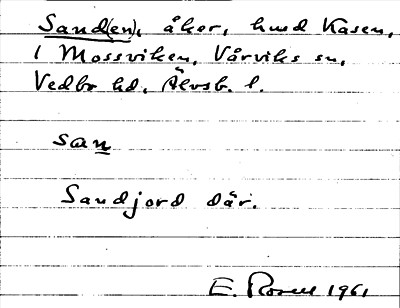 Sand(en), åker, hmd Kasen,
i Mossviken, Vårviks sn,
Vedbo hd, Älvsb. l.
san
Sandjord där.
E. Rosell 1961